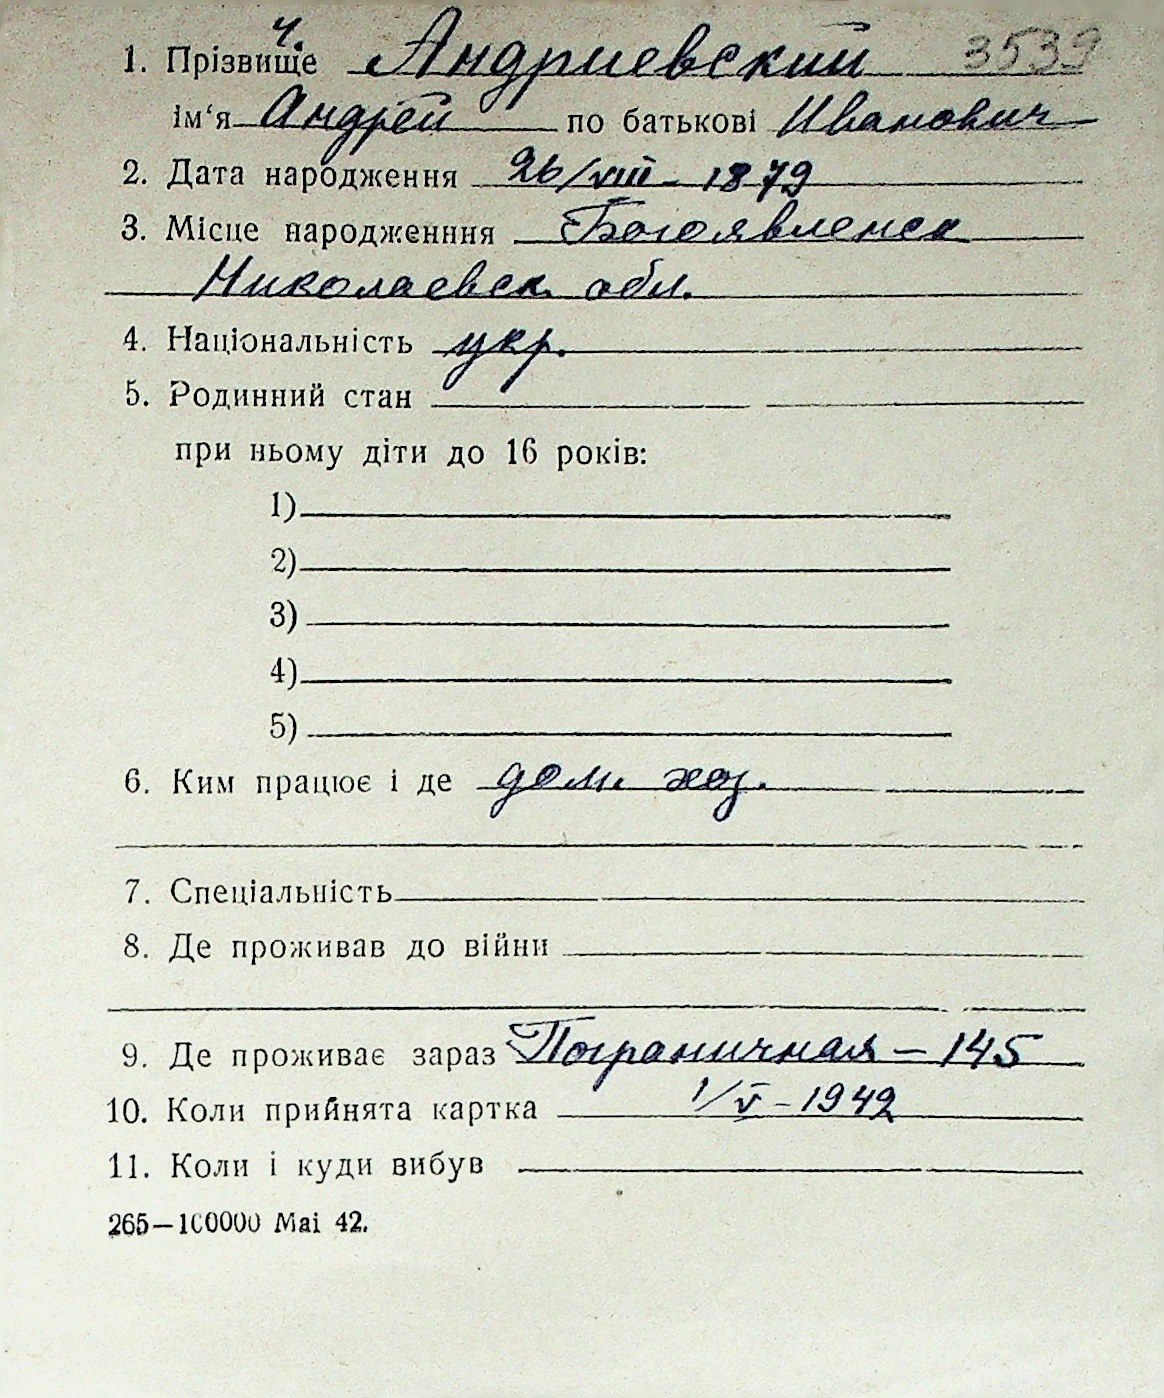 ч.
1. Прізвище Андриевский 3539
ім‘я Андрей по батькові Иванович
2. Дата народження 26/VIII - 1879
3. Місце народженння Богоявленск
Николаевск. обл.
4. Національність укр.
5. Родинний стан
при ньому діти до 16 років:
1)
2)
3)
4)
5)
6. Ким працює і де дом. хоз.
7. Спеціальність
8. Де проживав до війни
9. Де проживає зараз Пограничная – 145
10. Коли прийнята картка 1/V - 1942
11. Коли і куди вибув
265—100000 Mai 42.